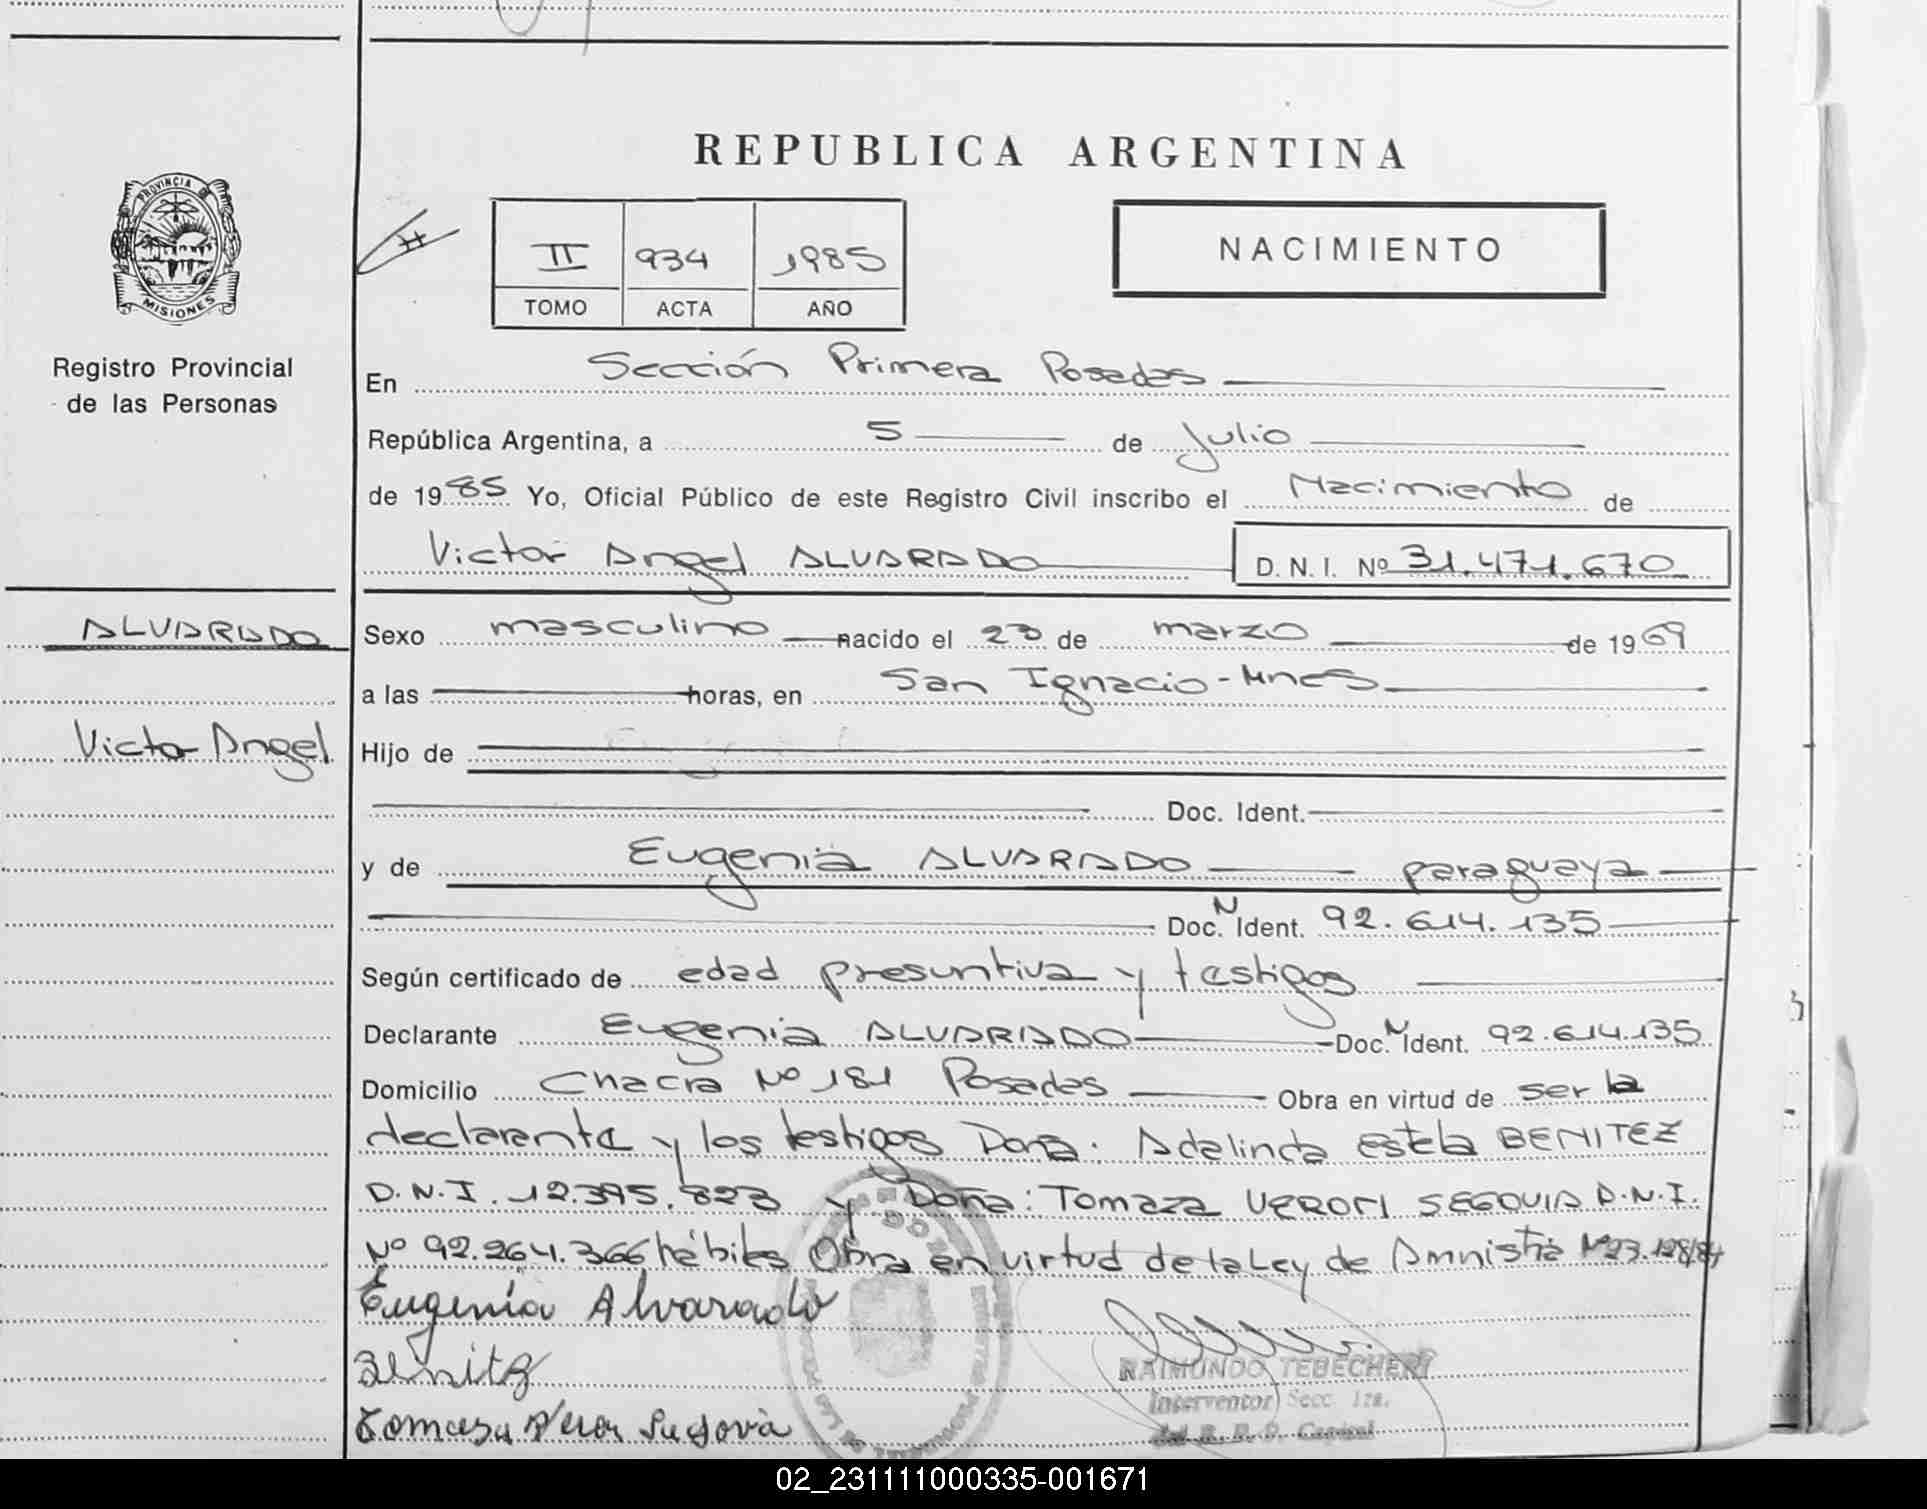 REPUBLICA ARGENTINA
PROVINCIA DE
MISIONES
Registro Provincial
de las Personas
II 934 1985
TOMO ACTA AÑO
NACIMIENTO
En Sección Primera Posadas
República Argentina, a 5 de Julio
de 1985 Yo, Oficial Público de este Registro Civil inscribo el Nacimiento de
Victor Angel ALVARADO D.N.I. Nº 31.471.670
ALVARADO
Victor Angel
Sexo masculino nacido el 23 de marzo de 1969
a las horas, en San Ignacio-Mnes
Hijo de
Doc. Ident.
y de Eugenia ALVARADO paraguaya
Doc. N Ident. 92.614.135
Según certificado de edad presuntiva y testigos
Declarante Eugenia ALVARADO Doc. N Ident. 92.614.135
Domicilio Chacra Nº 181 Posadas Obra en virtud de ser la
declarante y los testigos Doña: Adelinda Estela BENITEZ
D.N.I. 12.395.823 y Doña: Tomaza SEGOVIA D.N.I.
Nº 92.264.366 hábiles Obra en virtud de la Ley de Amnistia Nº 23.128/84
Eugenia Alvarado
Benitez
Tomasa Vera Segovia
RAIMUNDO TEBECHERI
Interventor Secc 1ra.
del R. P. P. Capital
02_231111000335-001671